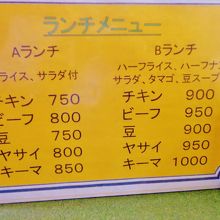 ランチメニュー
Aランチ
ライス、サラダ付
チキン 750
ビーフ 800
豆 750
ヤサイ 800
キーマ 850
Bランチ
ハーフライス、ハーフナ
サラダ、タマゴ、豆スープ
チキン 900
ビーフ 950
豆 900
ヤサイ 950
キーマ 1000